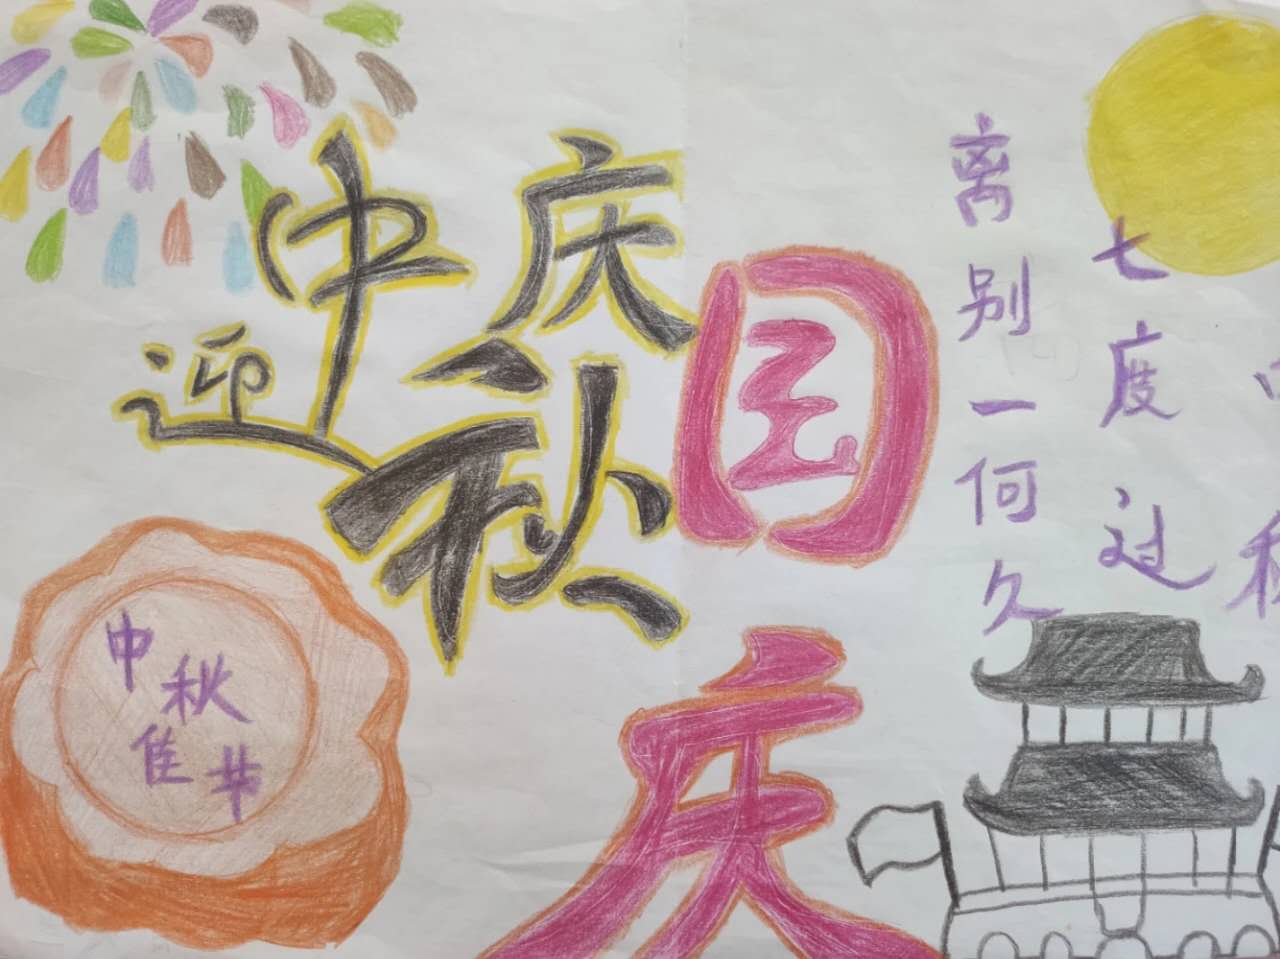 迎中秋
庆国庆
离别一何久
七度过
中秋
佳节